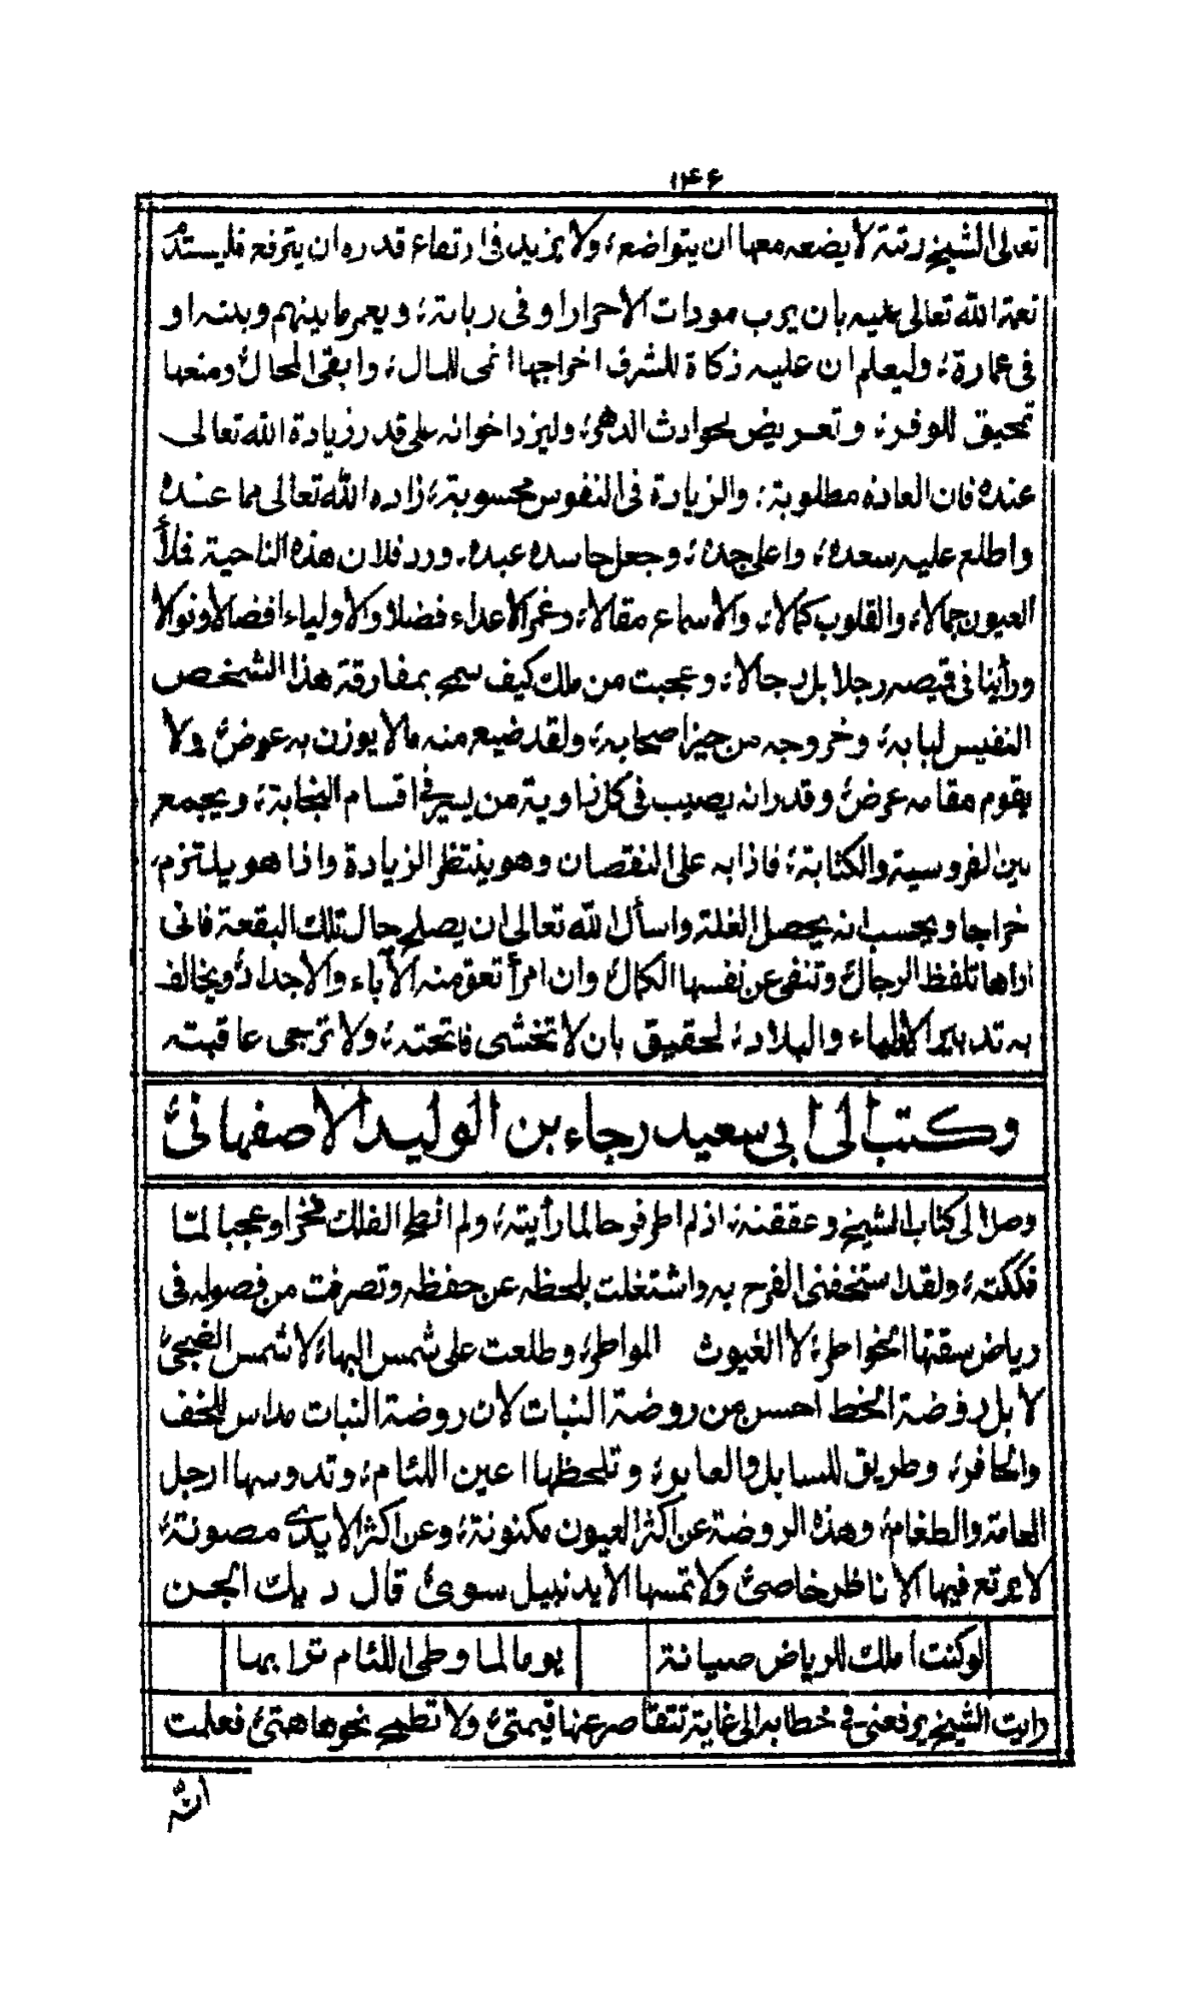 ١٤٦
تعالى الشيخ رتبة لا يضعه معها ان يتواضع، ولا يزيد فى ارتفاع قدره ان يترفع فليستدم
نعمة الله تعالى عليه بأن يرب مودات الاحرار اوفى ربابة، ويعمر ما بينهم وبينه او
فى عمارة، وليعلم ان عليه زكاة للشرف اخراجها انمى للمال، وابقى للحال ومنعها
تمحيق للوفر، وتعريض لحوادث الدهر، وليزد اخوانه على قدر زيادة الله تعالى
عنده فان العادة مطلوبة، والزيادة فى النفوس محسوبة، زاده الله تعالى مما عنده
واطلع عليه سعده، واعلى جده، وجعل حاسده عبده۔ ورد فلان هذه الناحية فملأ
العيون جمالا، والقلوب كمالا، والاسماع مقالا، وغمر الاعداء فضلا والاولياء افضالا ونوالا
ورأينا فى قميصه رجلا بل رجالا، وعجبت من ملك كيف سمح بمفارقة هذا الشخص
النفيس لبابه، وخروجه من حيز اصحابه، ولقد ضيع منه مالا يوزن به عوض ولا
يقوم مقامه عرض وقدر انه يصيب فى كل زاوية من يسير فى اقسام النجابة، ويجمع
بين الفروسية والكتابة، فاذا به على النقصان وهو ينتظر الزيادة واذا هو يلتزم
خراجا ويحسب انه يحصل الغلة واسأل الله تعالى ان يصلح حال تلك البقعة فانى
اراها تلفظ الرجال وتنفى عن نفسها الكمال وان امرأ تعوّ منه الآباء والاجداد ويخالف
به تدبير الالباء والبلاد، لحقيق بان لا تخشى فاتحته، ولا ترجى عاقبته
وكتب الى ابى سعيد رجاء بن الوليد الاصفهانى
وصل الى كتاب الشيخ وعققنه، اذ لم اطر فرحا لما رأيته، ولم انطح الفلك فخرا وعجبا لمّا
فككته، ولقد استخفنى الفرح به واشتغلت بلحظه عن حفظه وتصرفت من فصوله فى
رياض سقتها الخواطر، لا الغيوث المواطر، وطلعت على شمس البهاء لا شمس الضحى
لا بل روضة الخط احسن من روضة النبات لان روضة النبات مداس للخف
والحافر، وطريق للسابل والعابر، وتلحظها اعين اللئام، وتدوسها ارجل
العامة والطغام، وهذه الروضة عن اكثر العيون مكنونة، وعن اكثر الايدى مصونة،
لا يرتع فيها الا ناظر خاصى ولا تمسها الا يد نبيل سوى قال ديك الجن
لو كنت املك للرياض صيانة يوما لما وطى اللئام ترابها
رايت الشيخ يرفعنى فى خطابه الى غاية تتقاصر عنها قيمتى ولا تطمح نحوها همتى فعلمت
انّه